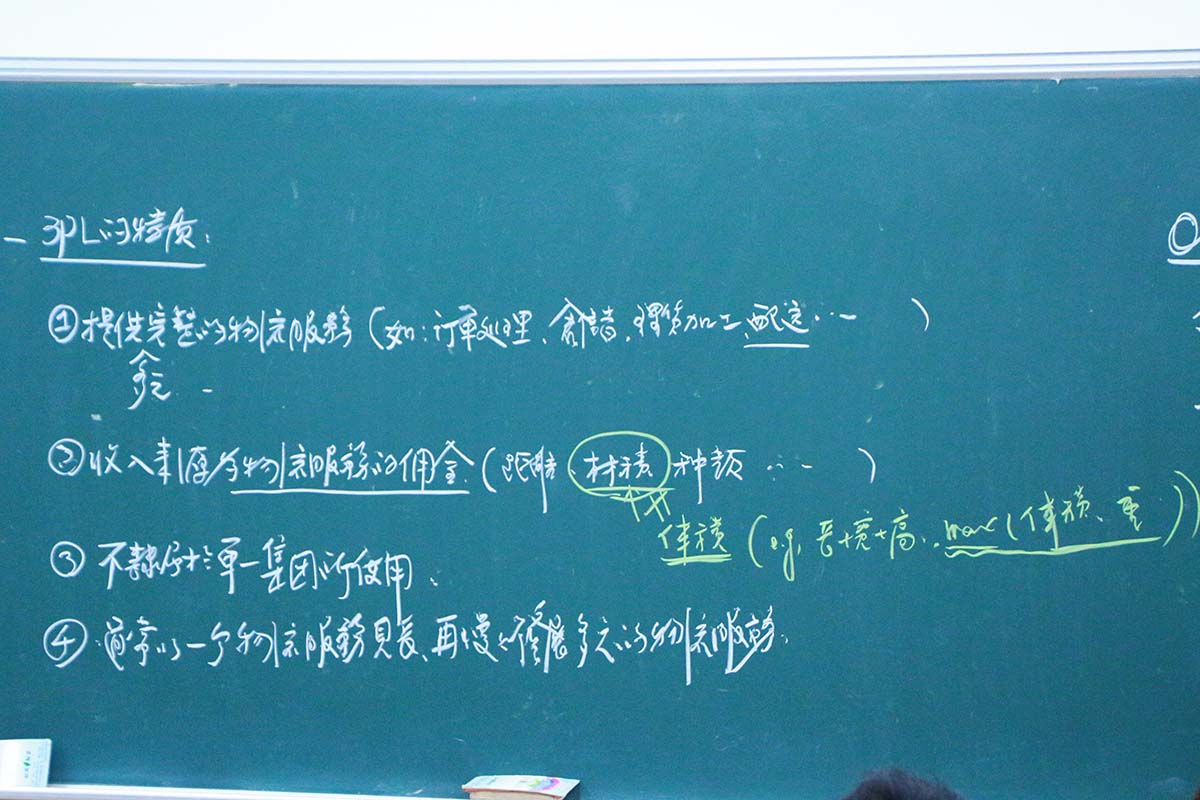 3PL的特质:
①提供完整的物流服務(如:訂單処理、倉儲、理貨加工、配送...)
②收入來源為物流服務的佣金(距離、材積、种類...)
体積(e.g. 長+寬+高, max(体積、重))
③不隸屬於單一集团所使用、
④通常以一个物流服務見長、再慢々發展多元的物流服務.